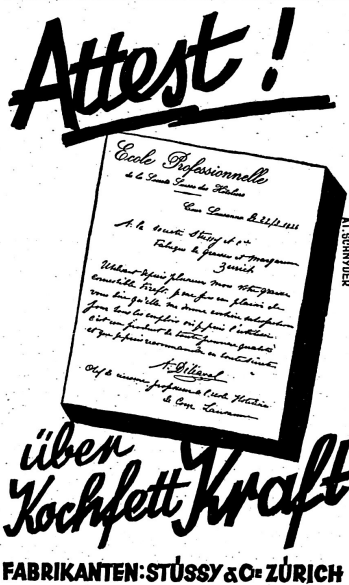 Attest!
Ecole Professionnelle
de la Société Suisse des Hôteliers
Cour Lausanne
A la Société Stüssy & Cie
Fabrique de graisse et Margarine
Zurich
Utilisant depuis plusieurs mois votre graisse
comestible Kraft, je me fais un plaisir de
vous dire qu'elle me donne entière satisfaction
pour tous les emplois où je puis l'utiliser.
C'est un produit de toute première qualité
et que je puis recommander en
Chef de cuisine, professeur à l'école Hôtelière
de Cour Lausanne
A.T. SCHNYDER
über
Kochfett Kraft
FABRIKANTEN: STÜSSY & CIE ZÜRICH